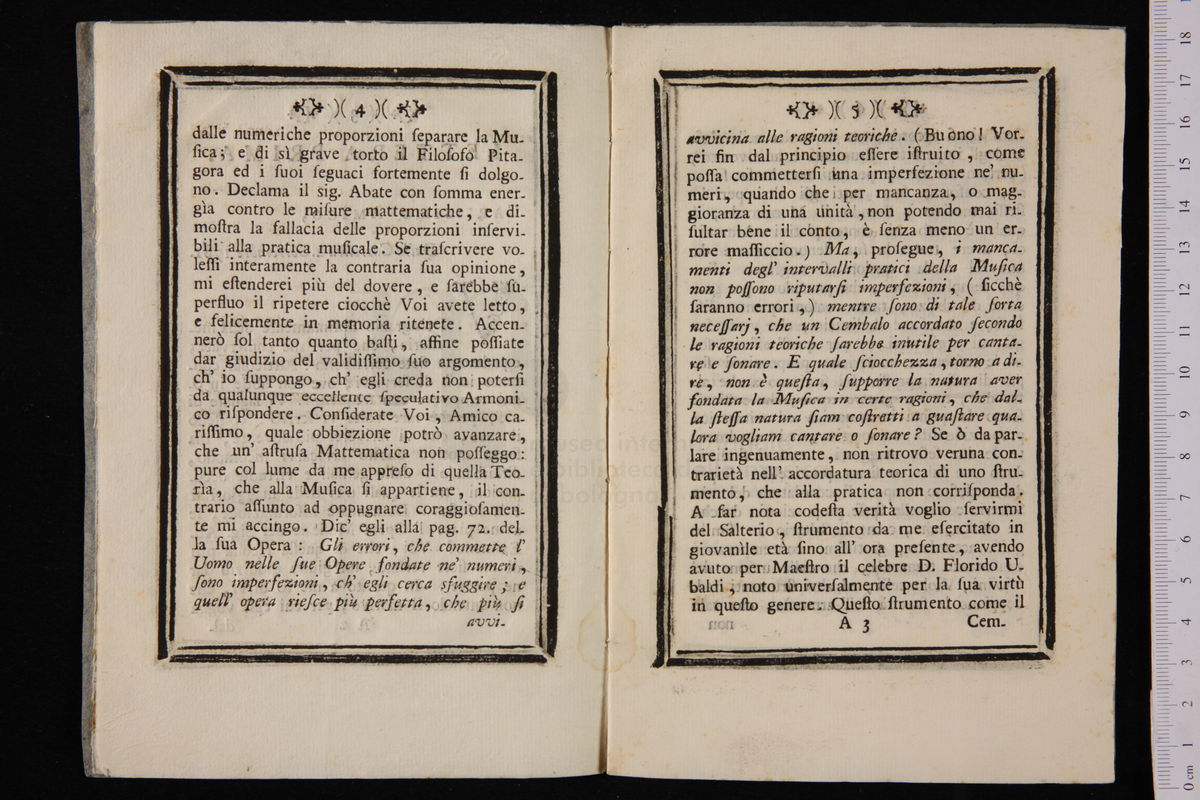 )( 4 )(
dalle numeriche proporzioni ſeparare la Mu-
ſica; e di sì grave torto il Filoſofo Pita-
gora ed i ſuoi ſeguaci fortemente ſi dolgo-
no. Declama il sig. Abate con ſomma ener-
gìa contro le miſure mattematiche, e di-
moſtra la fallacia delle proporzioni inſervi-
bili alla pratica muſicale. Se traſcrivere vo-
leſſi interamente la contraria ſua opinione,
mi eſtenderei più del dovere, e ſarebbe ſu-
perfluo il ripetere ciocchè Voi avete letto,
e felicemente in memoria ritenete. Accen-
nerò ſol tanto quanto baſti, affine poſſiate
dar giudizio del validiſſimo ſuo argomento,
ch' io ſuppongo, ch' egli creda non poterſi
da qualunque eccellente ſpeculativo Armoni-
co riſpondere. Conſiderate Voi, Amico ca-
riſſimo, quale obbiezione potrò avanzare,
che un' aſtruſa Mattematica non poſſeggo:
pure col lume da me appreſo di quella Teo-
rìa, che alla Muſica ſi appartiene, il con-
trario aſſunto ad oppugnare coraggioſamen-
te mi accingo. Dic' egli alla pag. 72. del-
la ſua Opera: Gli errori, che commette l'
Uomo nelle ſue Opere fondate ne' numeri,
ſono imperfezioni, ch' egli cerca sfuggire; e
quell' opera rieſce più perfetta, che più ſi
avvi-
)( 5 )(
avvicina alle ragioni teoriche. (Buono! Vor-
rei fin dal principio eſſere iſtruito, come
poſſa commetterſi una imperfezione ne' nu-
meri, quando che per mancanza, o mag-
gioranza di una unità, non potendo mai ri-
ſultar bene il conto, è ſenza meno un er-
rore maſſiccio.) Ma, proſegue, i manca-
menti degl' intervalli pratici della Muſica
non poſſono riputarſi imperfezioni, (ſicchè
ſaranno errori,) mentre ſono di tale ſorta
neceſſarj, che un Cembalo accordato ſecondo
le ragioni teoriche ſarebbe inutile per canta-
re e ſonare. E quale ſciocchezza, torno a di-
re, non è queſta, ſupporre la natura aver
fondata la Muſica in certe ragioni, che dal-
la ſteſſa natura ſiam coſtretti a guaſtare qua-
lora vogliam cantare o ſonare? Se ò da par-
lare ingenuamente, non ritrovo veruna con-
trarietà nell' accordatura teorica di uno ſtru-
mento, che alla pratica non corriſponda.
A far nota codeſta verità voglio ſervirmi
del Salterio, ſtrumento da me eſercitato in
giovanìle età ſino all' ora preſente, avendo
avuto per Maeſtro il celebre D. Florido U-
baldi, noto univerſalmente per la ſua virtù
in queſto genere. Queſto ſtrumento come il
A 3 Cem-